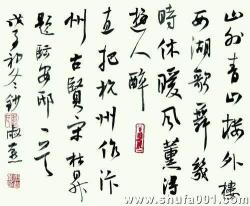 山外青山樓外樓
西湖歌舞幾
時休暖風薰得
遊人醉
直把杭州作汴
州 古賢宋林昇
題臨安邸一首
戊子初冬鈔
www.shufa001.com